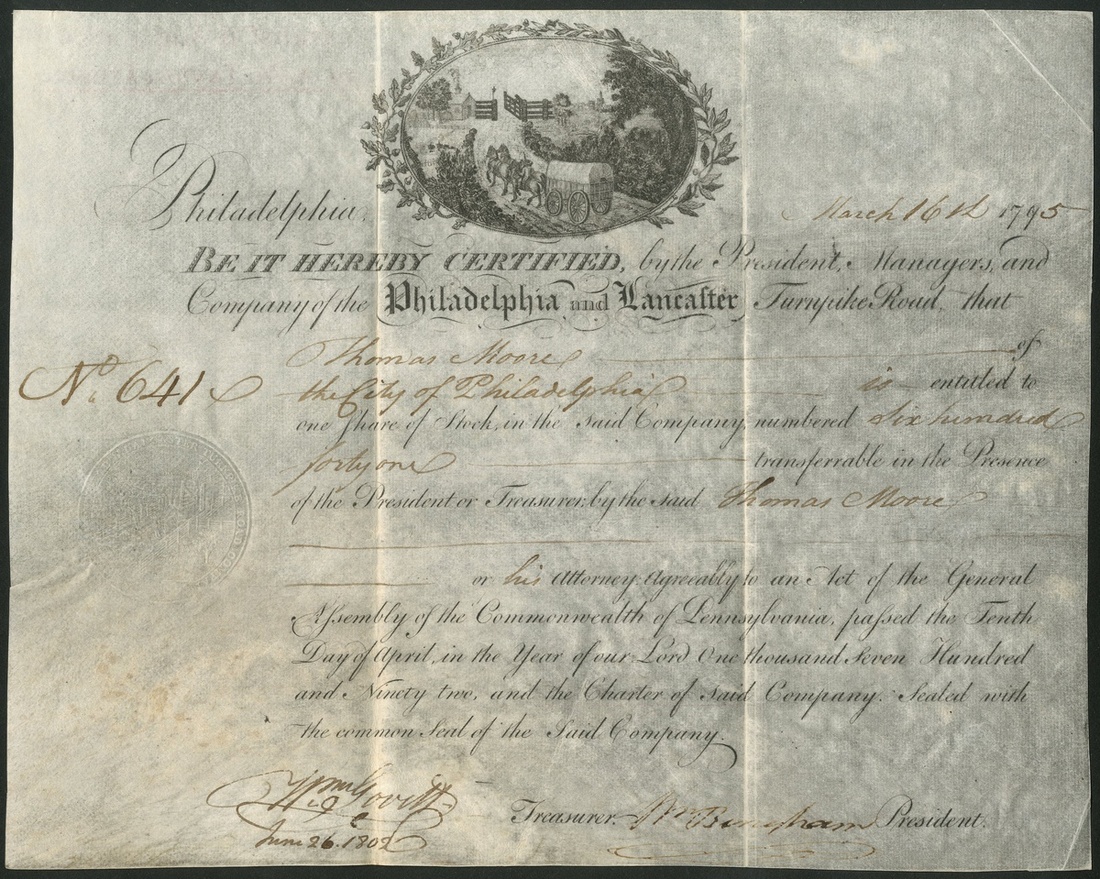 Philadelphia, March 16th 1795
BE IT HEREBY CERTIFIED, by the President, Managers, and
Company of the Philadelphia and Lancaster Turnpike Road, that
Thomas Moore of
No. 641 the City of Philadelphia is entitled to
one Share of Stock, in the said Company, numbered Six hundred
forty one transferrable in the Presence
of the President or Treasurer, by the said Thomas Moore
or his Attorney; Agreeably to an Act of the General
Assembly of the Commonwealth of Pennsylvania, passed the Tenth
Day of April, in the Year of our Lord One thousand Seven Hundred
and Ninety two, and the Charter of said Company. Sealed with
the common Seal of the Said Company.
Wm Govett Treasurer. Wm Bingham President.
June 26. 1802